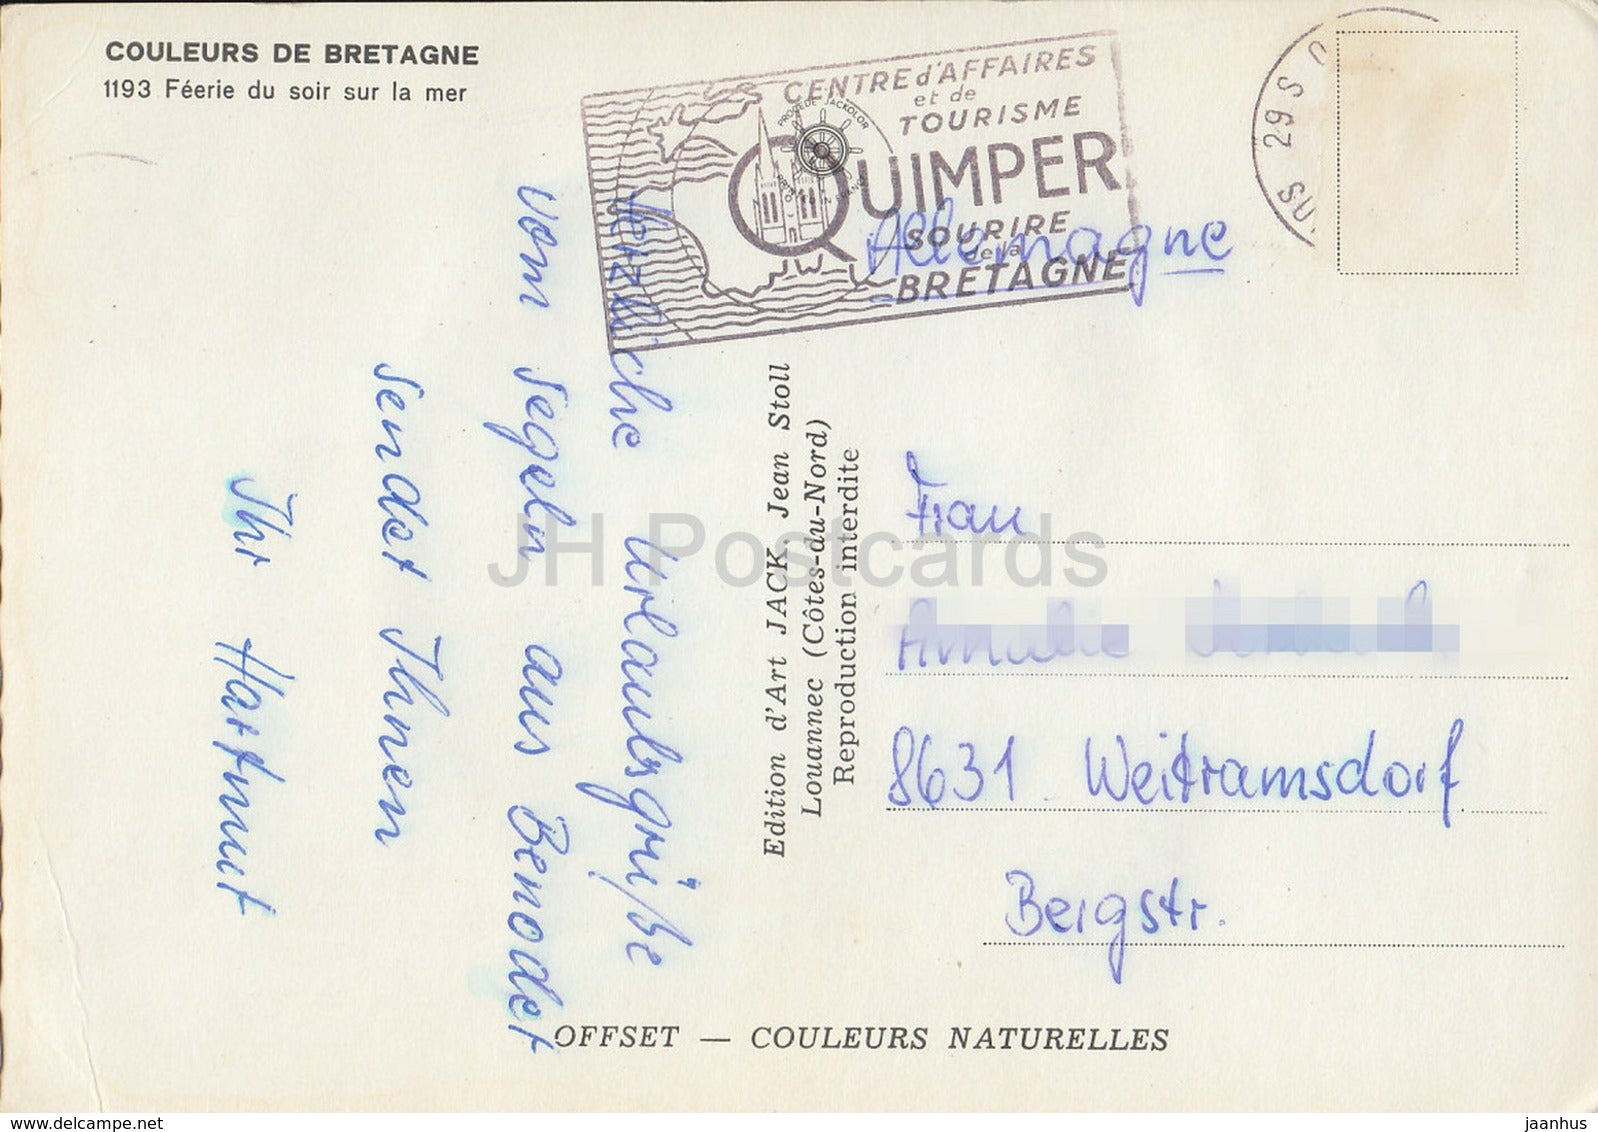 COULEURS DE BRETAGNE
1193 Féerie du soir sur la mer
CENTRE d'AFFAIRES
et de
TOURISME
QUIMPER
SOURIRE
de la
BRETAGNE
PROCEDE JACKOLOR
29 S
Allemagne
Herzliche Urlaubsgrüße
vom Segeln aus Benodet
sendet Ihnen
Ihr Hartmut
Edition d'Art JACK, Jean Stoll
Louannec (Côtes-du-Nord)
Reproduction interdite
Frau
8631 Weitramsdorf
Bergstr.
OFFSET — COULEURS NATURELLES
JH Postcards
delcampe.net
jaanhus